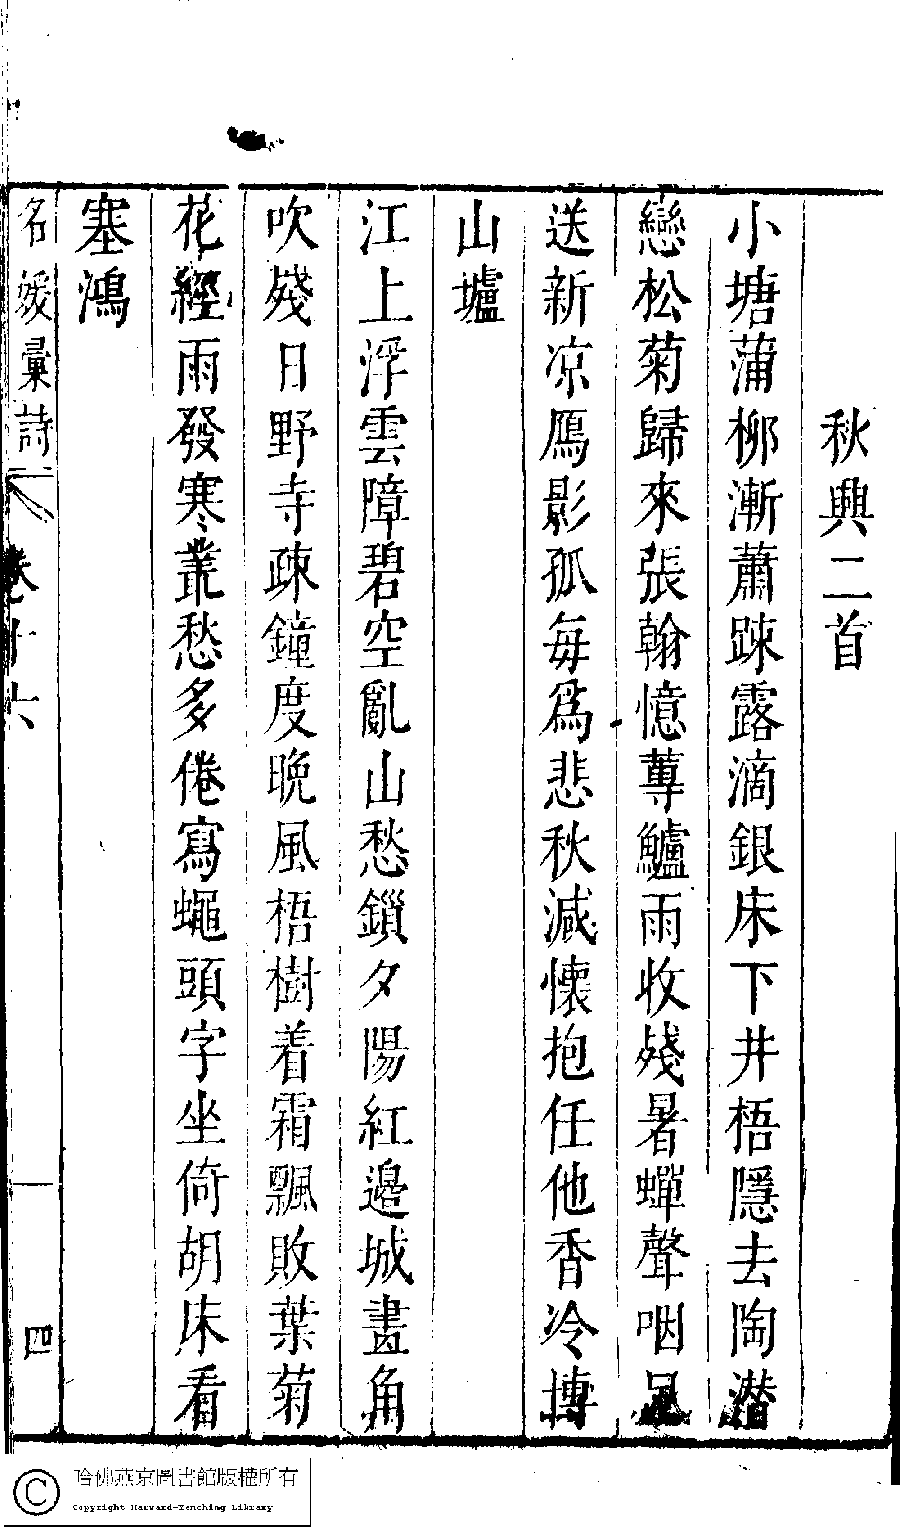 秋興二首
小塘蒲柳漸蕭踈露滴銀床下井梧隱去陶潛
戀松菊歸來張翰憶蓴鱸雨收殘暑蟬聲咽
送新凉鴈影孤每爲悲秋減懷抱任他香冷博
山壚
江上浮雲障碧空亂山愁鎖夕陽紅邊城畫角
吹殘日野寺疎鐘度晚風梧樹着霜飄敗葉菊
花經雨發寒叢愁多倦寫蠅頭字坐倚胡床看
塞鴻
名媛彙詩 卷十六 四
哈佛燕京圖書館版權所有
Copyright Harvard-Yenching Library